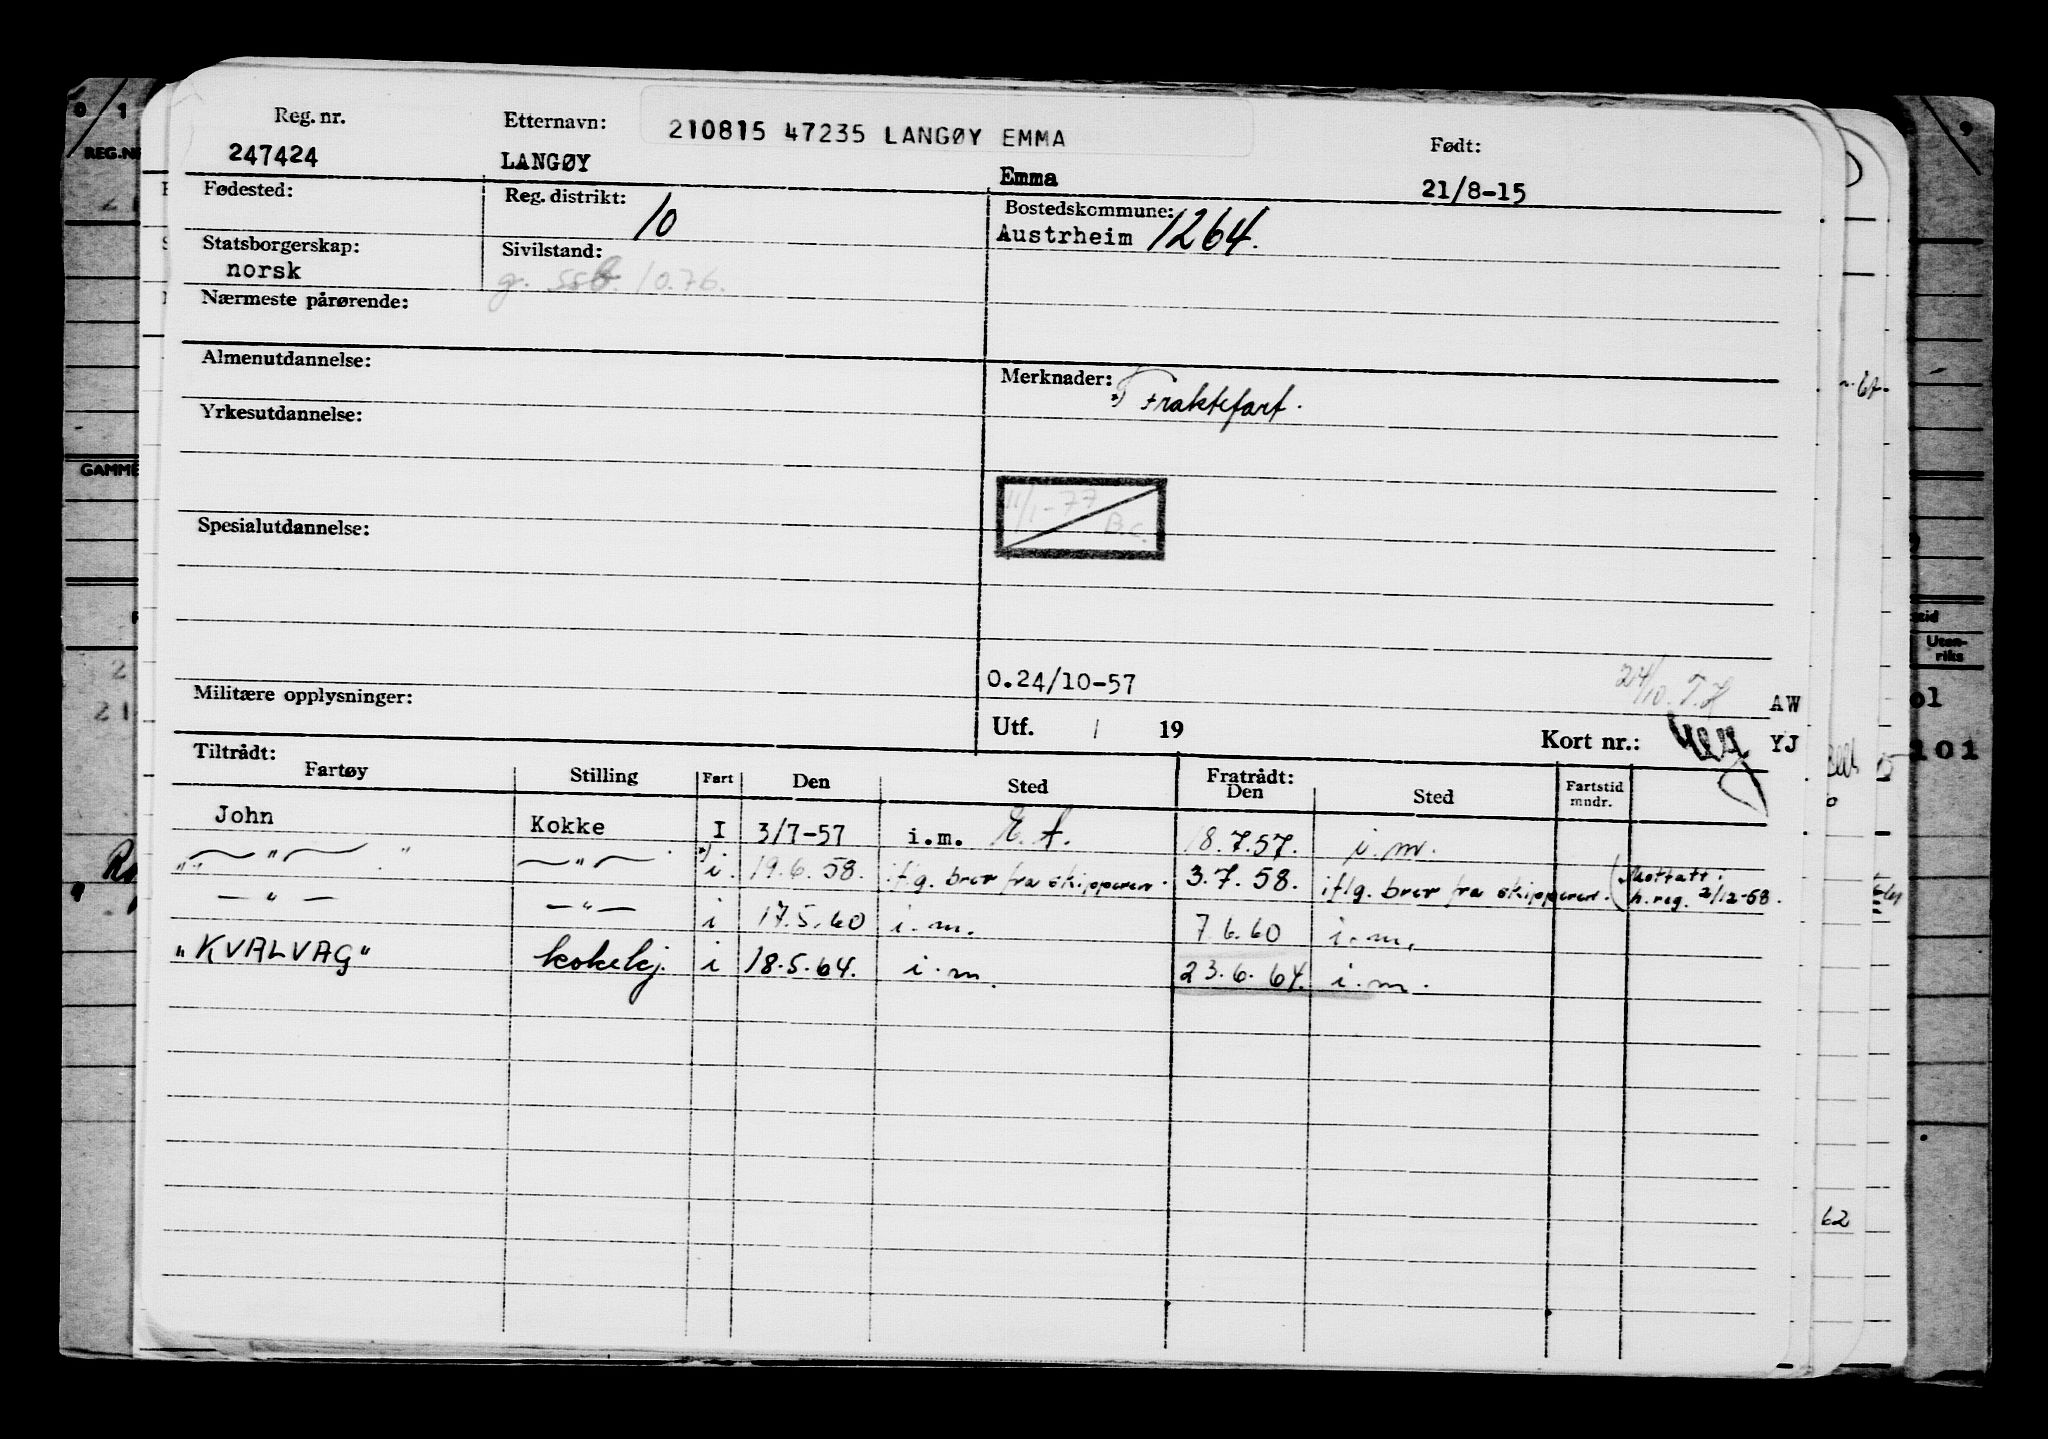 Reg. nr. Etternavn: 210815 47235 LANGØY EMMA Født:
247424 LANGØY Emma 21/8-15
Fødested: Reg. distrikt: 10 Bostedskommune:
Austrheim 1264.
Statsborgerskap: Sivilstand:
norsk g. ssb. 10.76.
Nærmeste pårørende:
Almenutdannelse: Merknader:
*) Fraktefart.
Yrkesutdannelse:
11/1-77 B.C.
Spesialutdannelse:
0.24/10-57 24/10. AW
Militære opplysninger:
Utf. / 19 Kort nr.: YJ
Tiltrådt: Fratrådt:
Fartøy Stilling Fart Den Sted Den Sted Fartstid mndr.
John Kokke I 3/7-57 i.m. 18.7.57. i.m.
" — " — " — " — *) i. 19.6.58. iflg. brev fra skipperen. 3.7.58. iflg. brev fra skipperen. (Mottatt i
h.reg. 2/12-58.
— " — — " — i 17.5.60 i.m. 7.6.60 i.m.
"KVALVAG" kokekj. i 18.5.64. i.m. 23.6.64. i.m.
REG.NR
GAMME
Uten-
riks
101
62